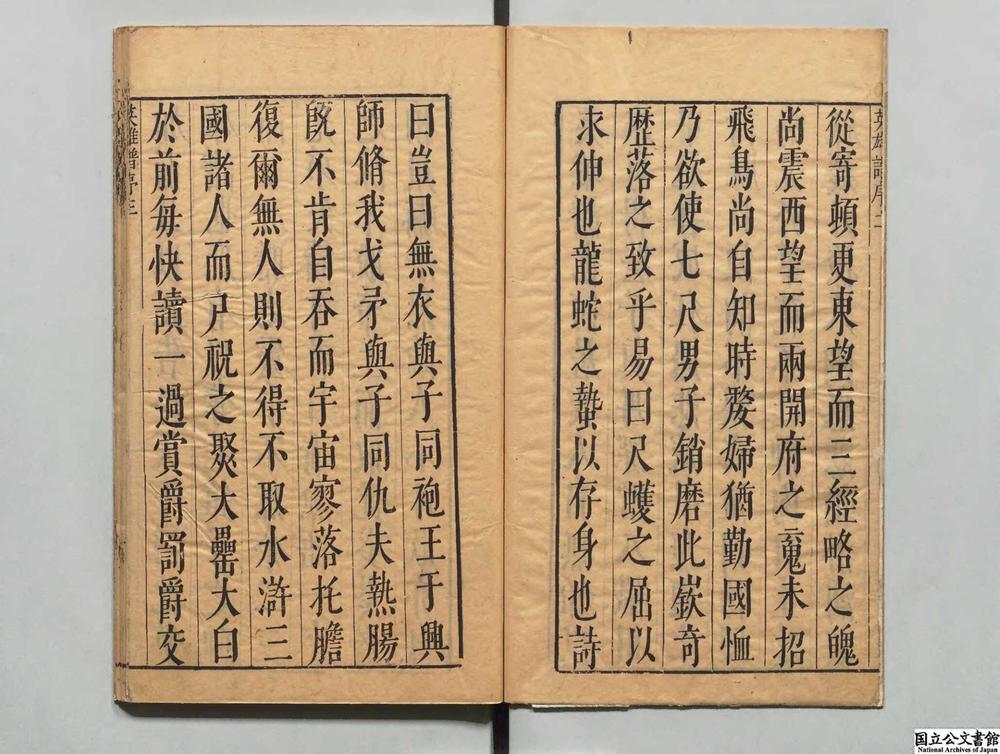 英雄譜序二
從寄頓更東望而三經略之魄
尚震西望而兩開府之䰟未招
飛鳥尚自知時嫠婦猶勤國恤
乃欲使七尺男子銷磨此嶔奇
歷落之致乎易曰尺蠖之屈以
求伸也龍蛇之蟄以存身也詩
曰豈曰無衣與子同袍王于興
師脩我戈矛與子同仇夫熱腸
旣不肯自吞而宇宙寥落托膽
復爾無人則不得不取水滸三
國諸人而尸祝之聚大罍大白
於前每快讀一過賞爵罰爵交
英雄譜序三
国立公文書館
National Archives of Japan